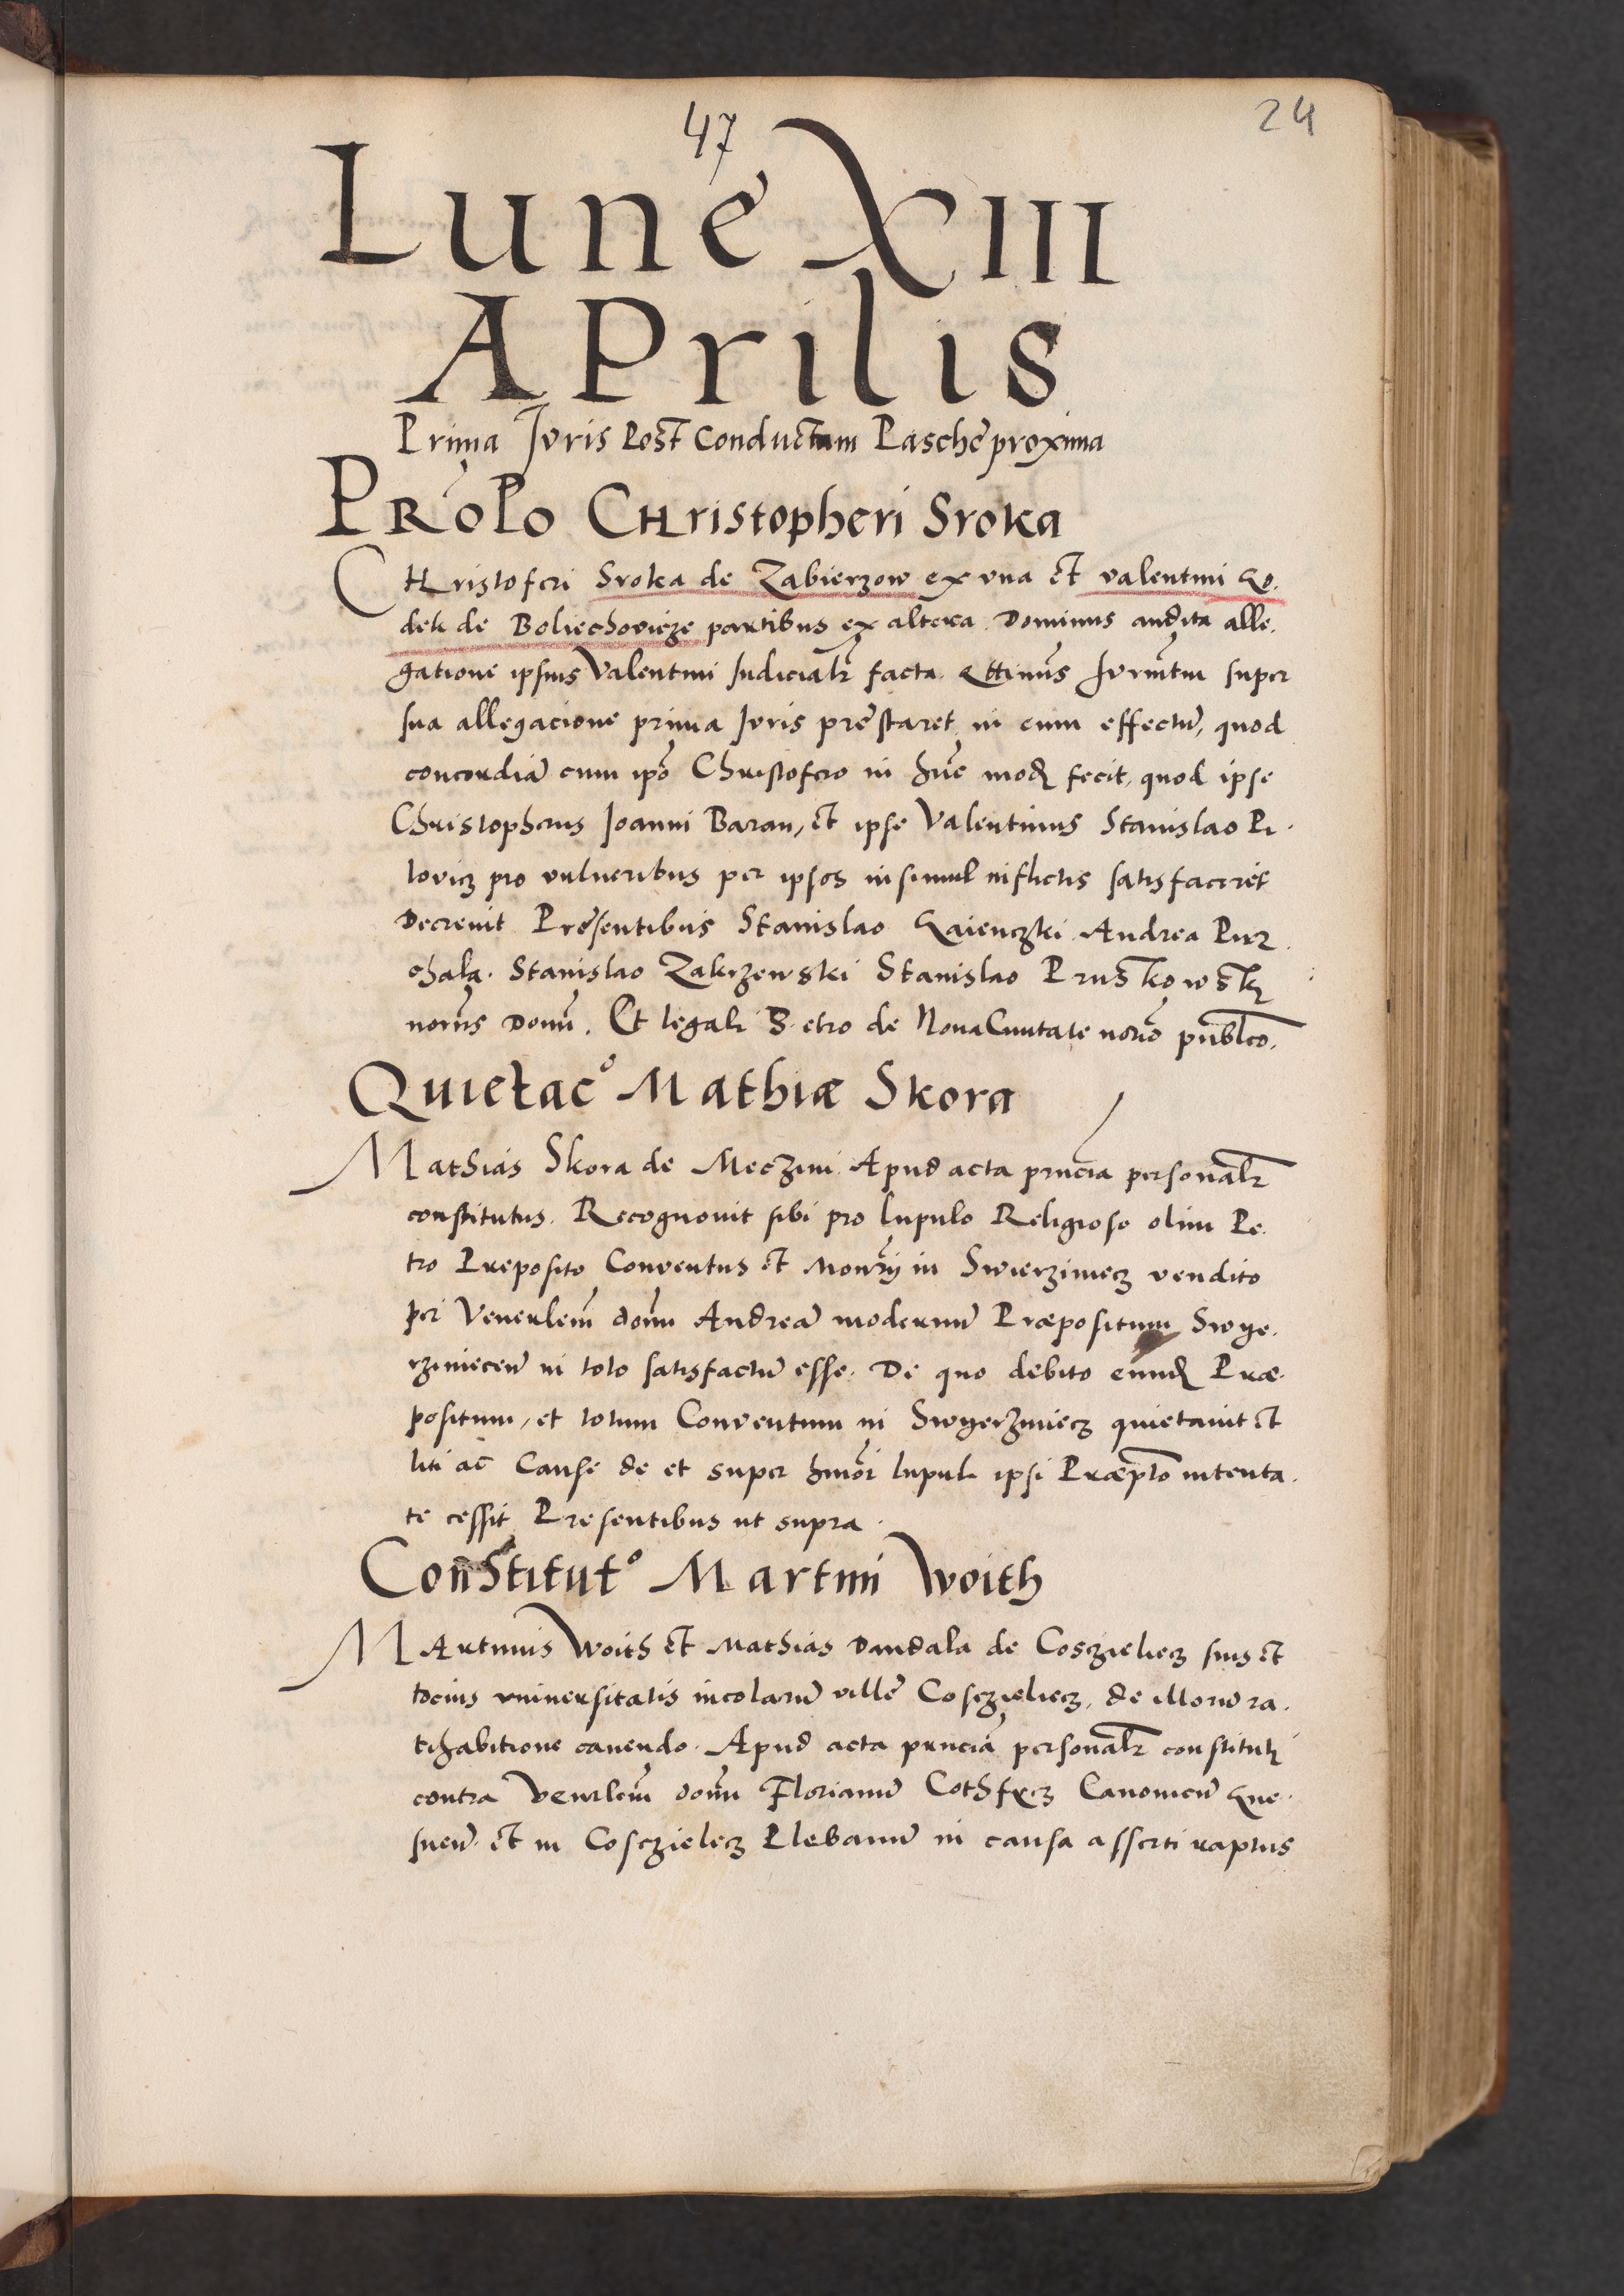 47
24
Lune XIII
APrilis
Prima Juris Post Conductum Pasche proxima
PRoĺo CHristopheri Sroka
CHristoferi Sroka de Zabierzow ex una et valentini Go.
dek de Boliechovicze partibus ex altera. Dominus audita alle.
gatione ipsius Valentini Judicialr facta. Jurmtm super
sua allegacione prima Juris prestaret in eum effectū, quod
concordiā cum ipō Christofero in hūc mod fecit, quod ipse
Christopherus Joanni Baran, et ipse Valentinus Stanislao Pi.
lovicz pro vulneribus per ipsos insimul inflictis satisfaceret
Decrevit Presentibus Stanislao Gaienczki Andrea Pir
chala. Stanislao Zakrzewski Stanislao Pruskowsk
notriis Domi. Et legali S. etro de Nova Civitate notrio publco.
Quietac° Mathiæ Skora
Mathias Skora de Meczini Apud acta prncia personalr
constitutus. Recognovit sibi pro lupulo Religioso olim Pe.
tro Preposito Conventus et Monrij in Swierziniecz vendito
per Venerlem domn Andreā modernū Præpositum Swye.
rziniecen in toto satisfactū esse. De quo debito eund Præ.
positum, et totum Conventum in Swyerzniecz quietavit et
liti ac Cause de et super hmōi lupuli ipsi Præpto intenta.
te cessit Presentibus ut supra.
Constitut° Martini Woith
MArtinus Woith et Mathias Dandala de Cosczieliecz suis et
tocius universitatis incolarū ville Cosczieliecz, de illorū ra.
tihabitione cavendo. Apud acta prncia personalr constituti
contra Venrlem domn Florianū Canonicū Gne.
snen. et in Cosczielecz Plebanū in causa asserti raptus